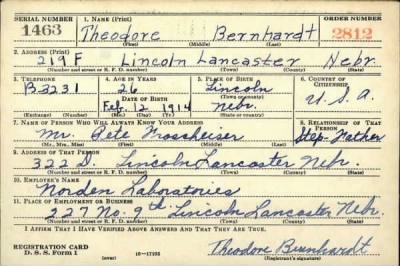 SERIAL NUMBER 1. NAME (Print) ORDER NUMBER
1463 Theodore Bernhardt 2812
(First) (Middle) (Last)
2. ADDRESS (Print)
219 F Lincoln Lancaster Nebr.
(Number and street or R. F. D. number) (Town) (County) (State)
3. TELEPHONE 4. AGE IN YEARS 5. PLACE OF BIRTH 6. COUNTRY OF CITIZENSHIP
B3231 26 Lincoln
DATE OF BIRTH (Town or county)
Feb. 12, 1914 Nebr. U.S.A.
(Exchange) (Number) (Mo.) (Day) (Yr.) (State or country)
7. NAME OF PERSON WHO WILL ALWAYS KNOW YOUR ADDRESS 8. RELATIONSHIP OF THAT PERSON
Mr. Pete Step-Father
(Mr., Mrs., Miss) (First) (Middle) (Last)
9. ADDRESS OF THAT PERSON
322 D. Lincoln Lancaster Nebr.
(Number and street or R. F. D. number) (Town) (County) (State)
10. EMPLOYER'S NAME
Norden Laboratories
11. PLACE OF EMPLOYMENT OR BUSINESS
227 No. 9th Lincoln Lancaster Nebr.
(Number and street or R. F. D. number) (Town) (County) (State)
I AFFIRM THAT I HAVE VERIFIED ABOVE ANSWERS AND THAT THEY ARE TRUE.
REGISTRATION CARD Theodore Bernhardt
D. S. S. Form 1 (over) 16—17105 (Registrant's signature)